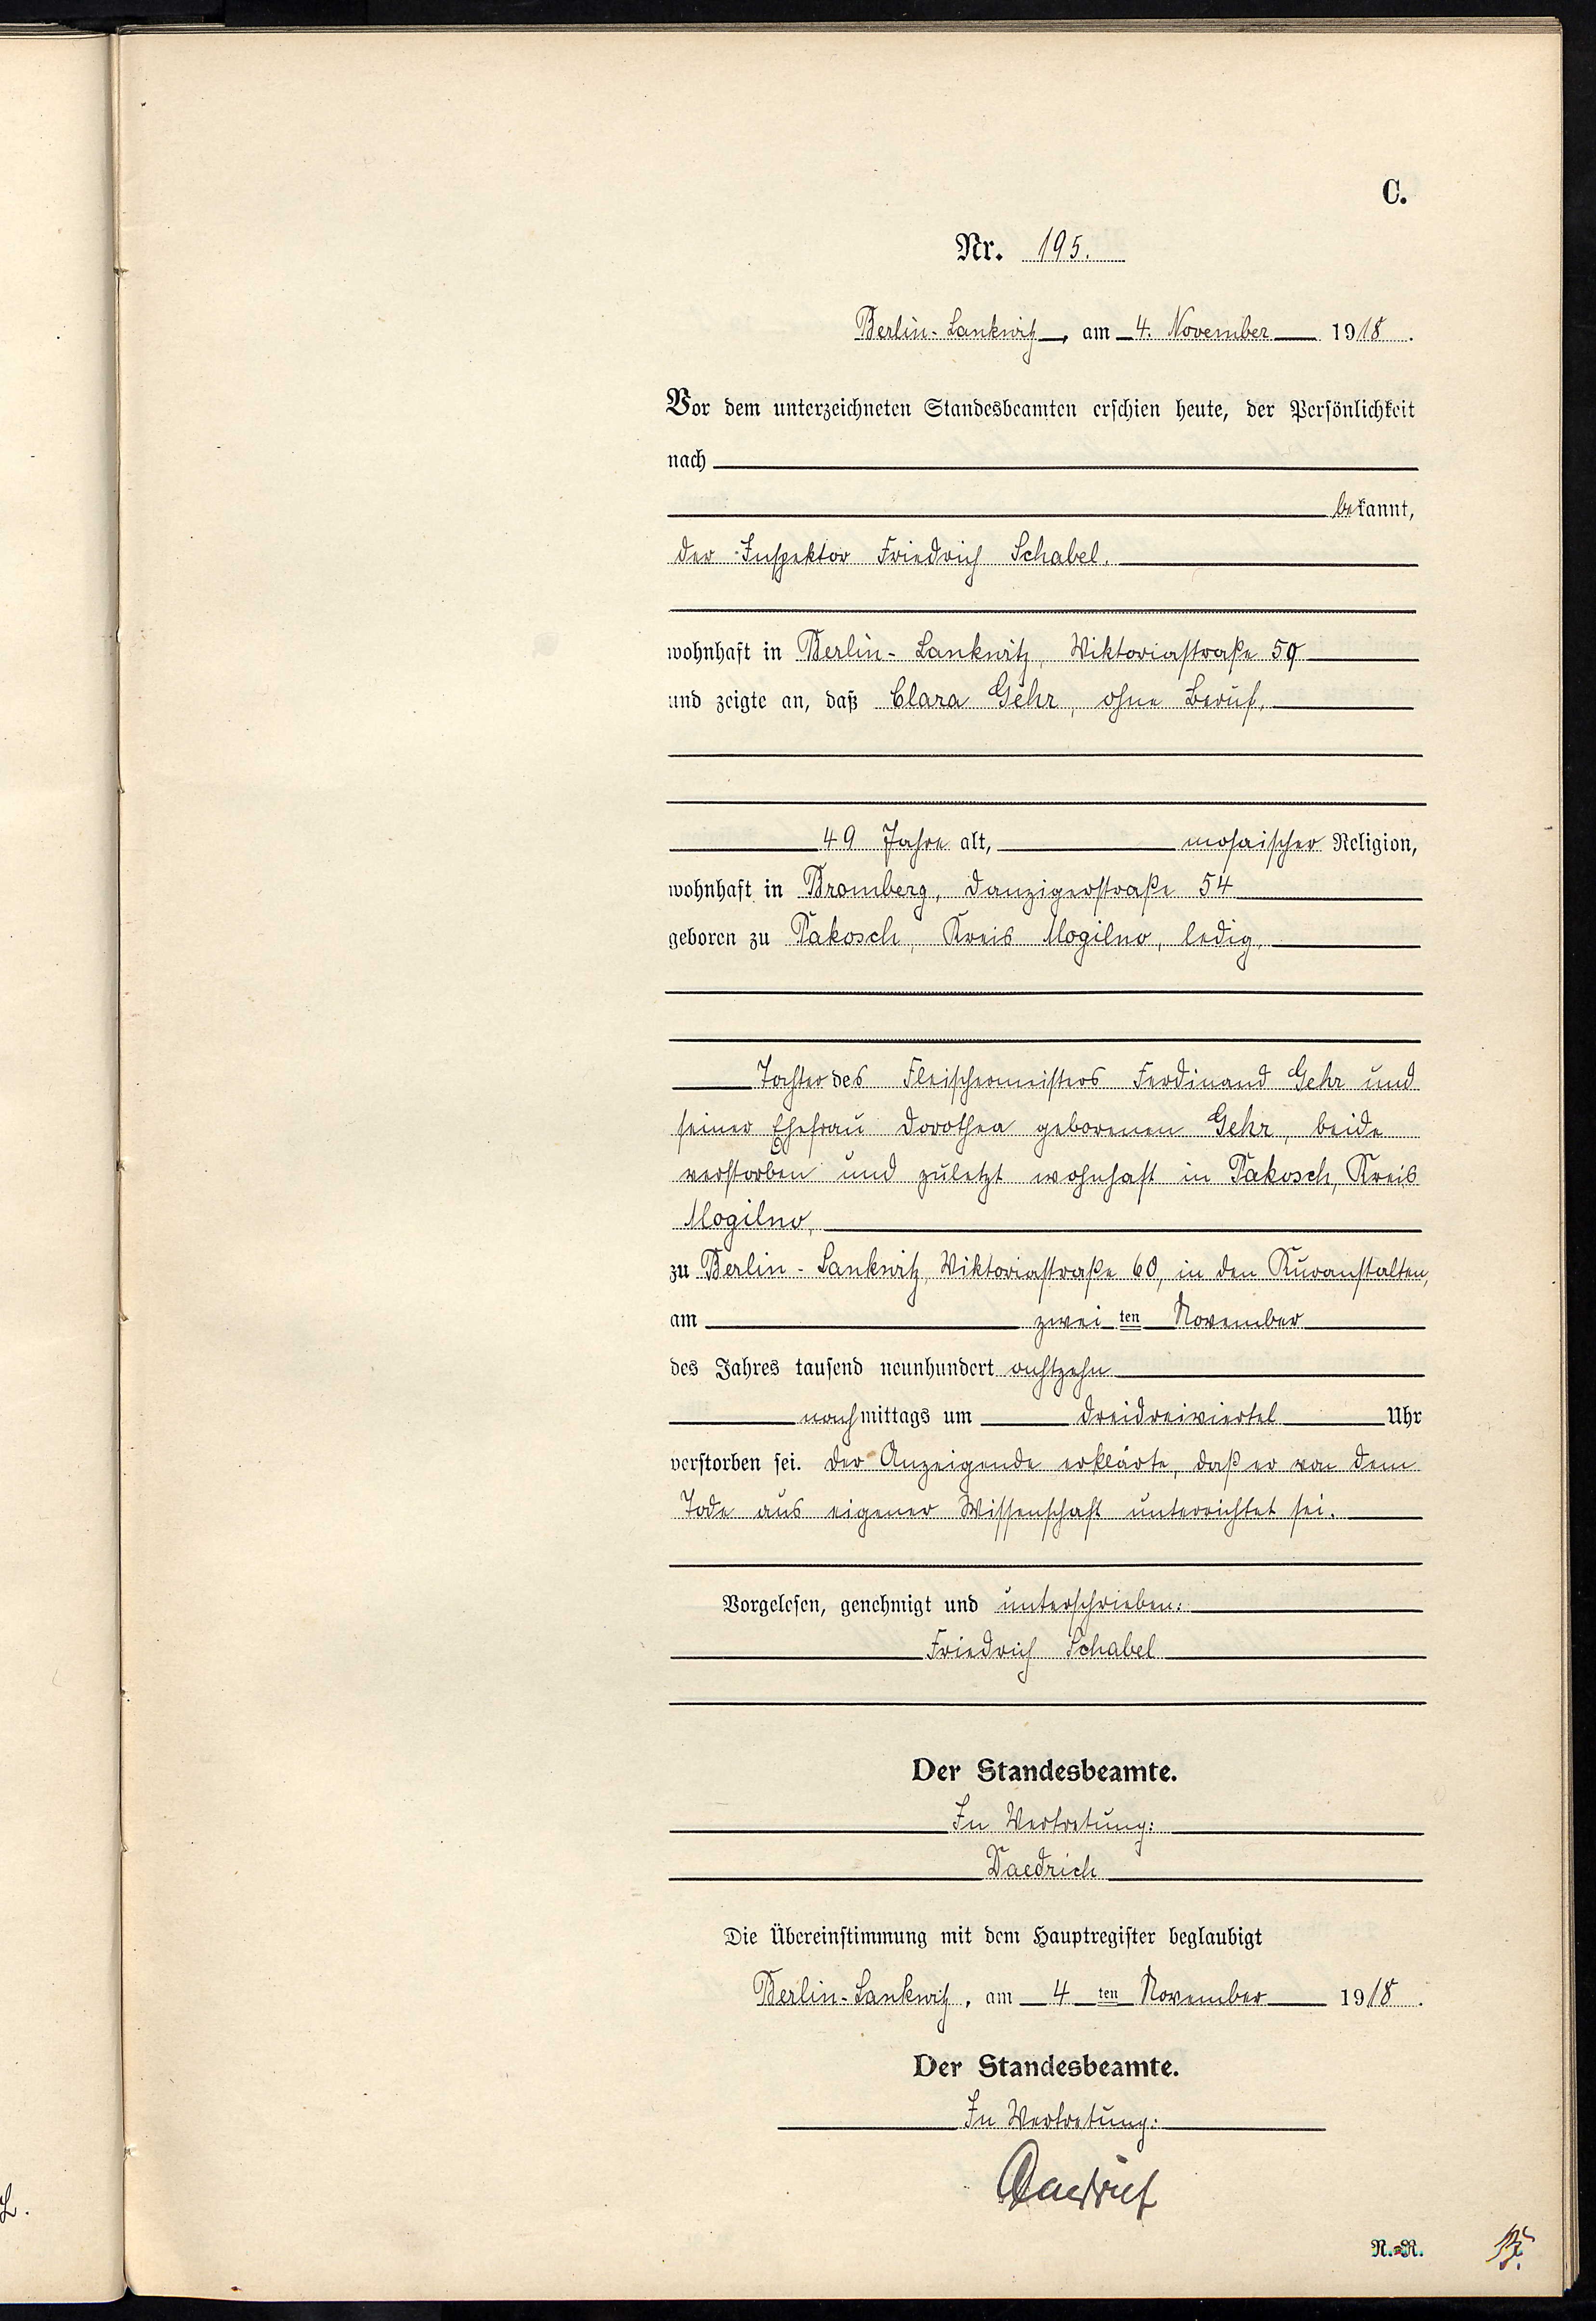 C.
Nr. 195.
Berlin-Lankwitz, am 4. November 1918.
Vor dem unterzeichneten Standesbeamten erschien heute, der Persönlichkeit
nach
bekannt,
der Inspektor Friedrich Schabel,
wohnhaft in Berlin-Lankwitz, Viktoriastraße 59
und zeigte an, daß Clara Gehr, ohne Beruf,
49 Jahre alt, mosaischer Religion,
wohnhaft in Bromberg, Danzigerstraße 54
geboren zu Pakosch, Kreis Mogilno, ledig,
Tochter des Fleischermeisters Ferdinand Gehr und
seiner Ehefrau Dorothea geborenen Gehr, beide
verstorben und zuletzt wohnhaft in Pakosch, Kreis
Mogilno,
zu Berlin-Lankwitz, Viktoriastraße 60, in den Kuranstalten,
am zweiten November
des Jahres tausend neunhundert achtzehn
nachmittags um dreidreiviertel Uhr
verstorben sei. Der Anzeigende erklärte, daß er von dem
Tode aus eigener Wissenschaft unterrichtet sei.
Vorgelesen, genehmigt und unterschrieben:
Friedrich Schabel
Der Standesbeamte.
In Vertretung:
Daedrich
Die Übereinstimmung mit dem Hauptregister beglaubigt
Berlin-Lankwitz, am 4ten November 1918.
Der Standesbeamte.
In Vertretung:
Daedrich
N.-R.